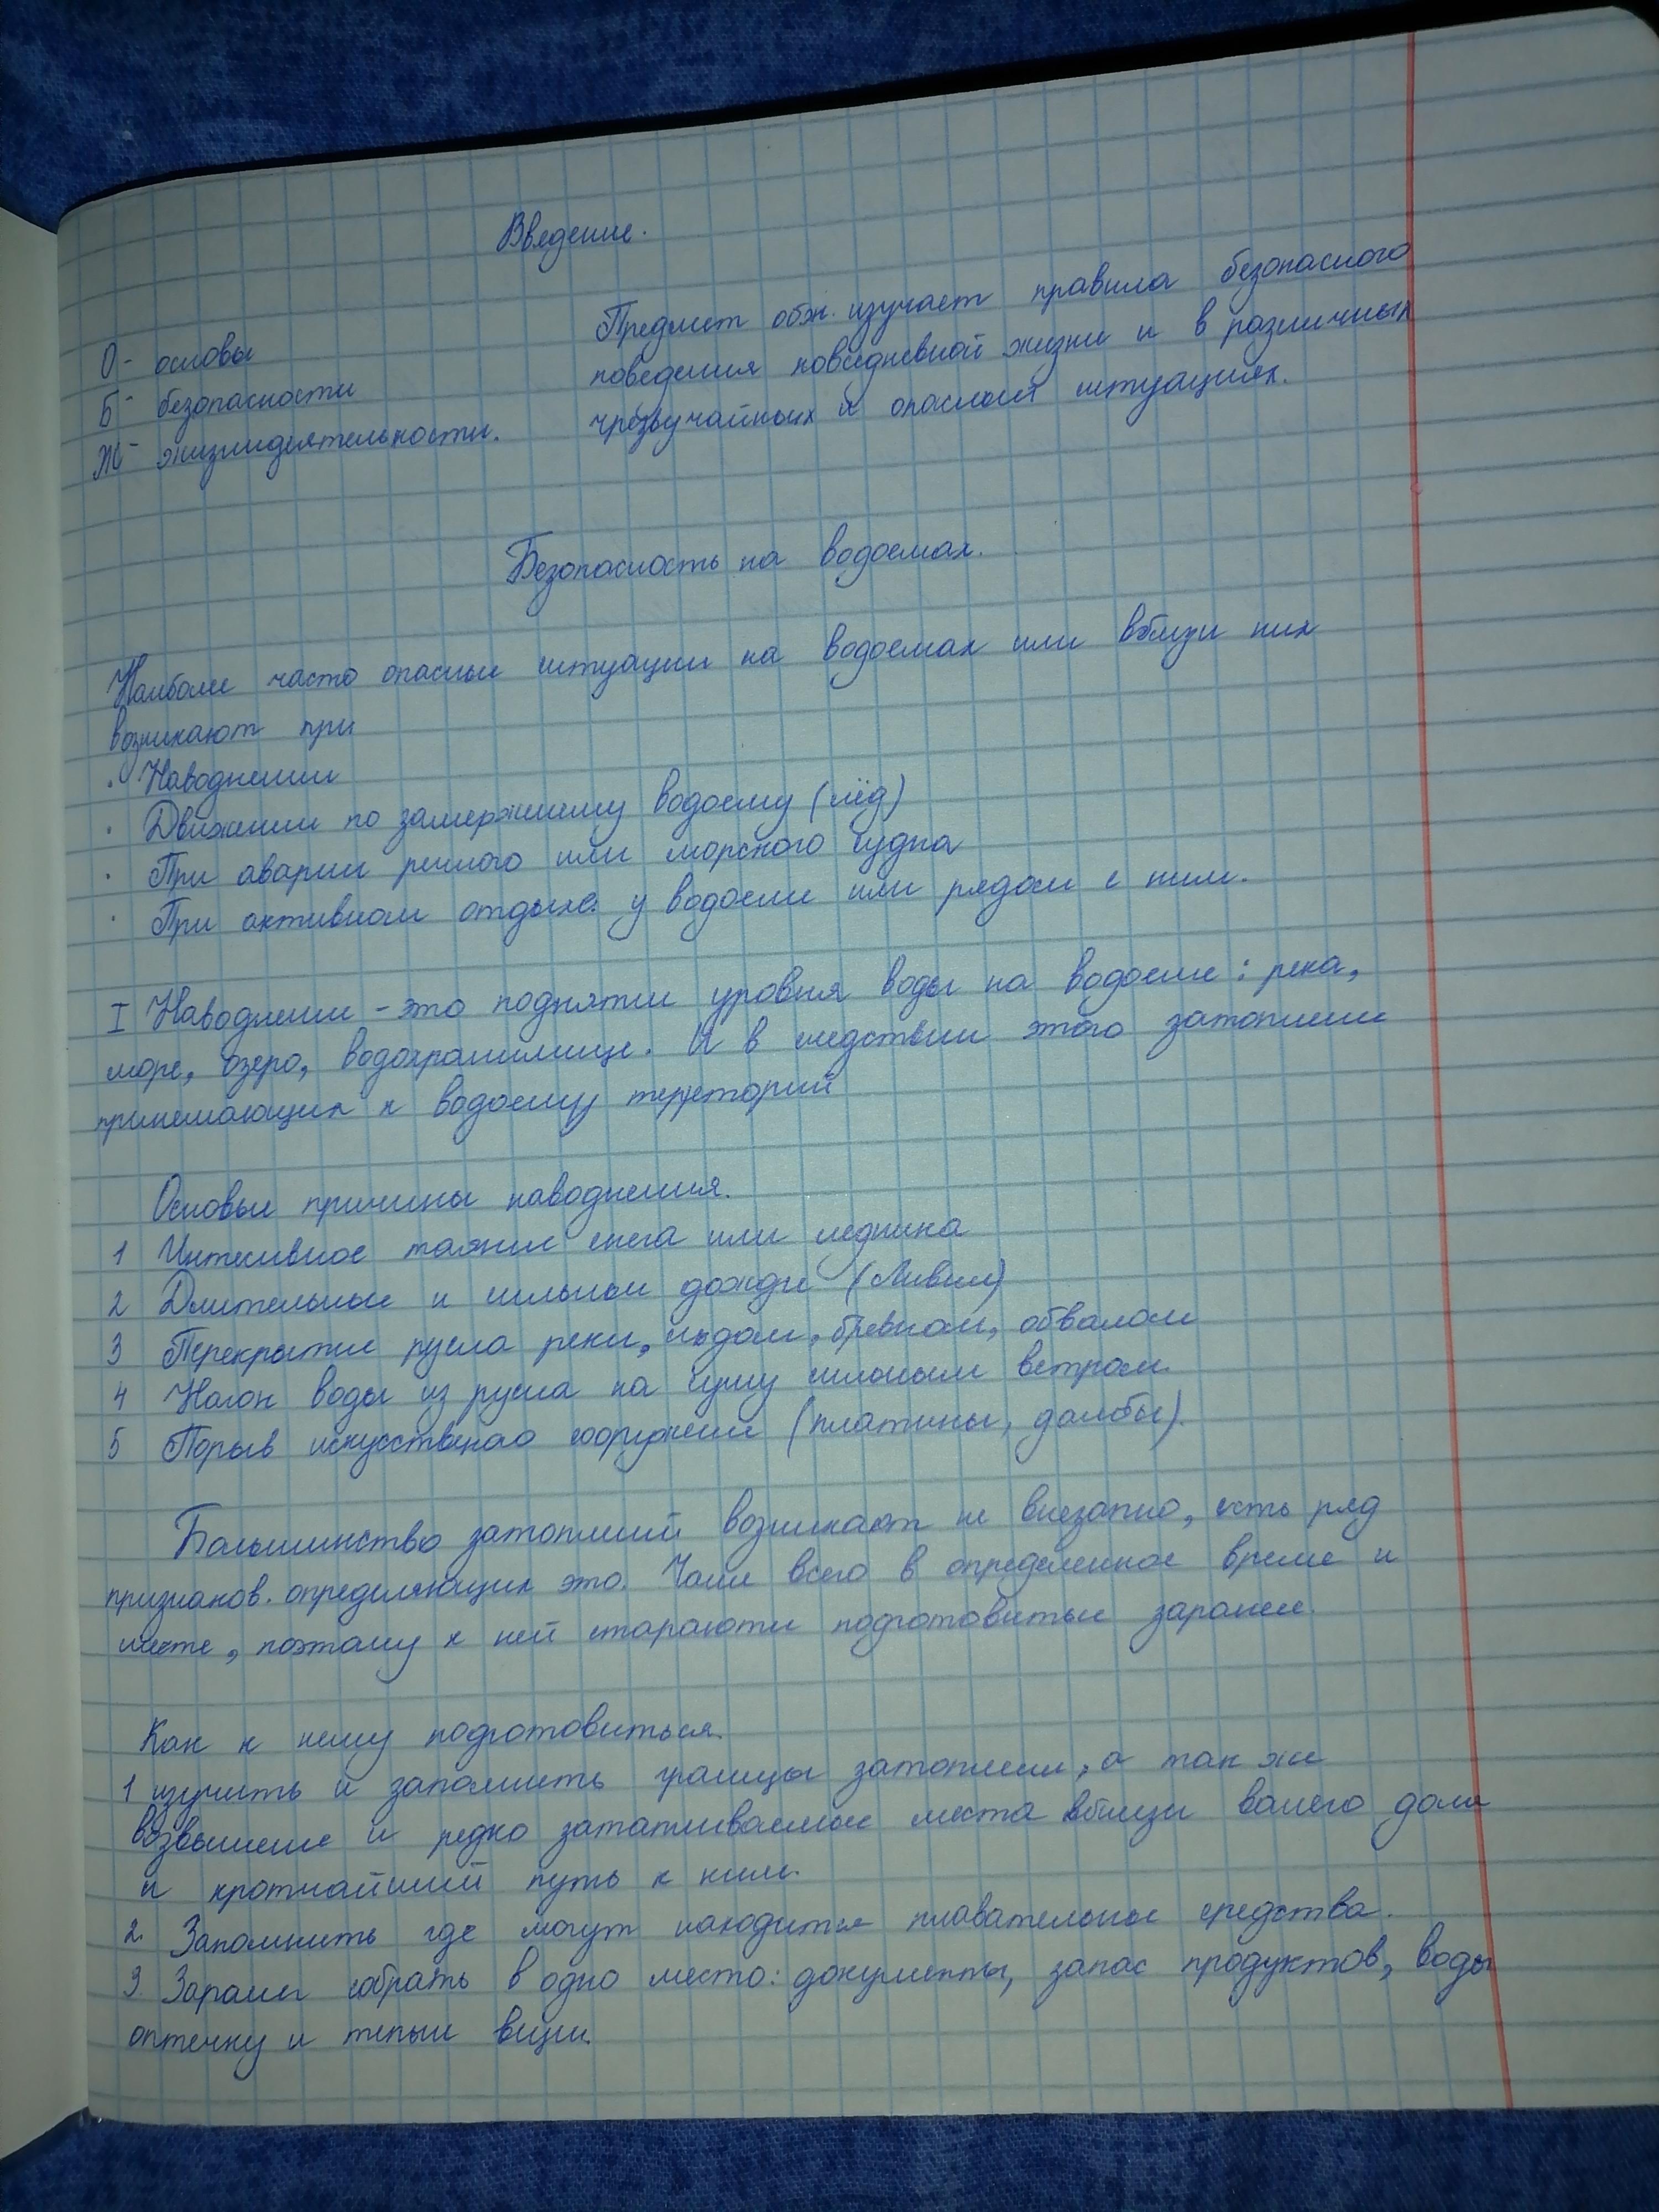 Введение.
О - основы
Б - безопасности
Ж - жизнидеятельности.
Предмет обж. изучает правила безопасного
поведения повседневной жизни и в различных
чрезвучайных и опасных ситуациях.
Безопасность на водоемах.
Наиболее часто опасные ситуации на водоемах или вблизи них
возникают при
· Наводнении
· Движении по замерзшему водоему (лёд)
· При аварии речного или морского судна
· При активном отдыхе у водоема или рядом с ним.
I Наводнение - это поднятие уровня воды на водоеме: река,
море, озеро, водохранилище. И в следствии этого затопление
принемающих к водоему територий
Основые причины наводнения.
1 Интесивное таяние снега или ледника
2 Длительные и сильные дожди (Ливни)
3 Перекрытие русла реки, льдом, бревном, обвалом
4 Нагон воды из русла на сушу сильным ветром
5 Порыв искусственао сооружения (платины, дамбы).
Большинство затоплений возникают не внезапно, есть ряд
признаков. определяющих это. Чаще всего в определенное время и
месте, поэтому к ней стараются подготовиться заранее.
Как к нему подготовиться.
1 изучить и запомнить границы затопления, а так же
возвышеные и редко затапливаемые места вблизи вашего дома
и кротчайший путь к ним.
2. Запомнить где могут находится плавательные средства.
3. Заранее собрать в одно место: документы, запас продуктов, воды
аптечку и теплые вещи.